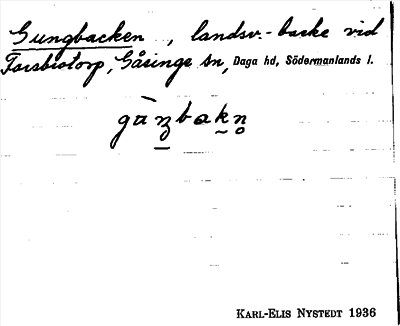 Gungbacken, landsv.-backe vid
Forsbrotorp, Gåsinge sn, Daga hd, Södermanlands l.
gùŋbakn̥
KARL-ELIS NYSTEDT 1936